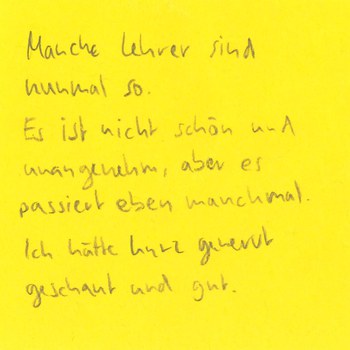 Manche Lehrer sind
nunmal so.
Es ist nicht schön und
unangenehm, aber es
passiert eben manchmal.
Ich hätte kurz genervt
geschaut und gut.